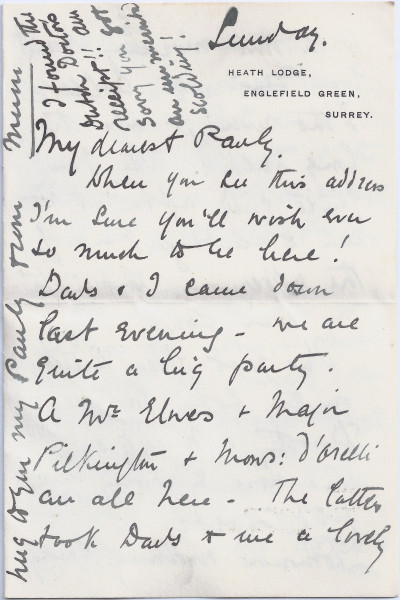 Sunday.
HEATH LODGE,
ENGLEFIELD GREEN,
SURREY.
My dearest Pauly.
When you see this address
I'm sure you'll wish ever
so much to be here!
Dads & I came down
last evening - we are
quite a big party.
A Mr Elwes & Major
Pilkington & Mons: d'Orelli
are all here - The latter
took Dads & me a lovely
hug to you my Pauly from Mum
I found the
Dutch Doctors
receipt!! So
sorry you
an unmerited
scolding!